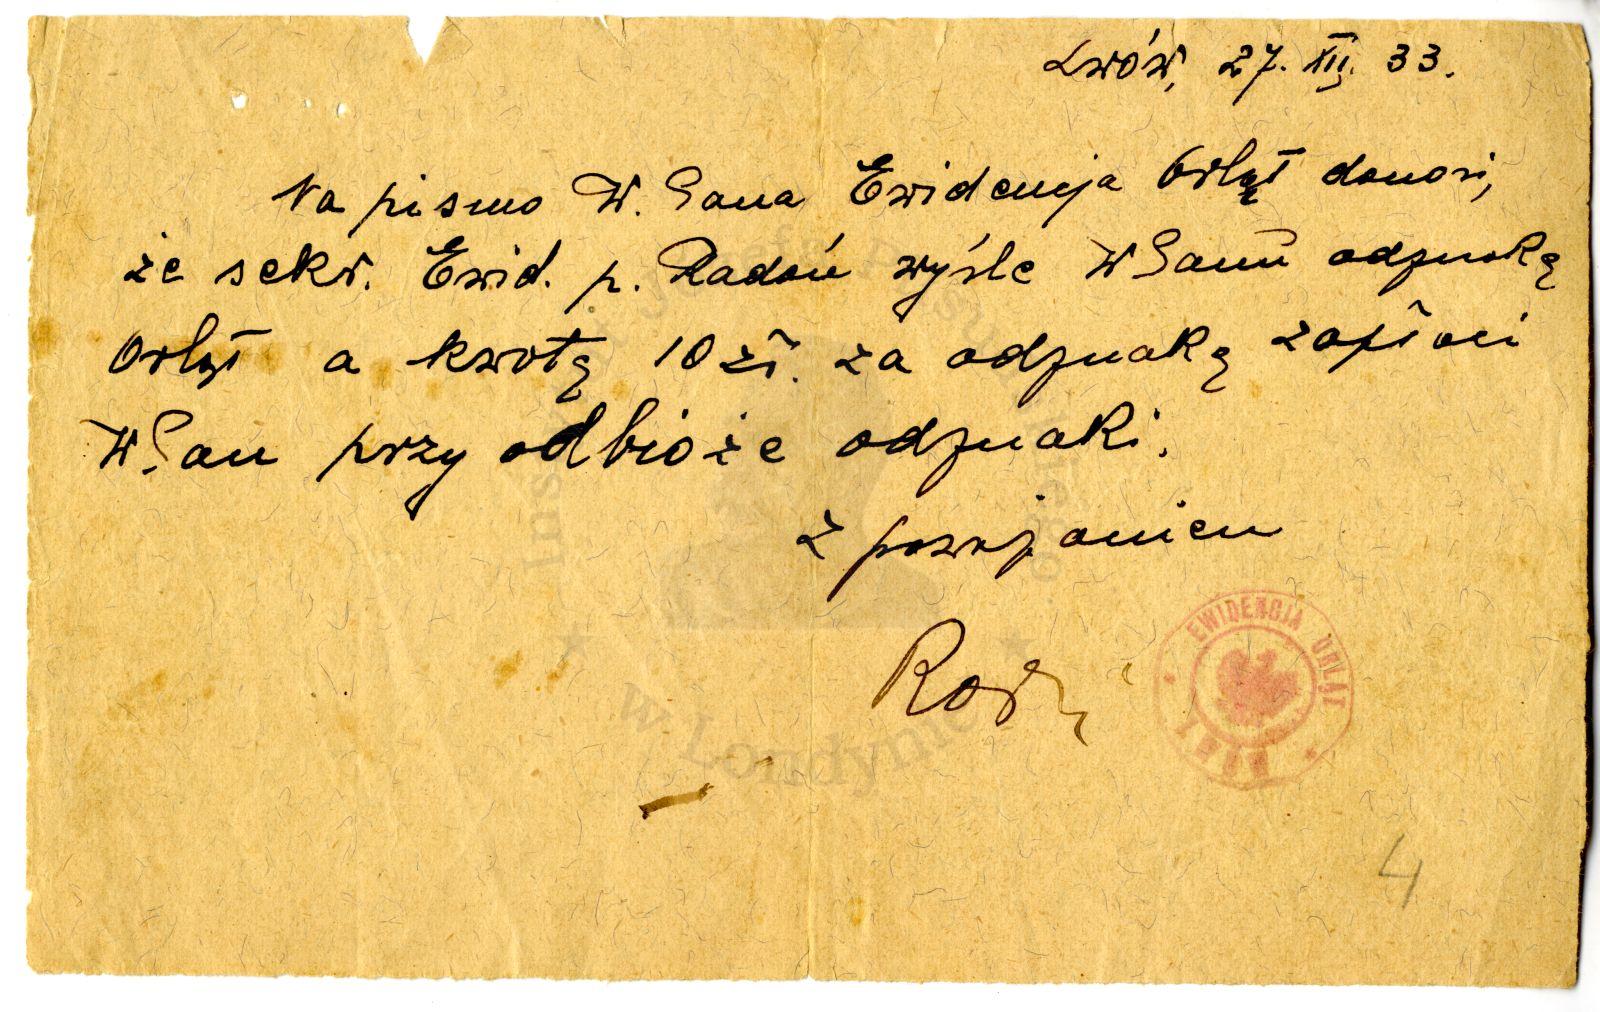 Lwów, 27. XII. 33.
Na pismo W. Pana Ewidencja Orląt donosi,
że sekr. Ewid. p. Radoń wyśle W Panu odznakę
Orląt a kwotę 10 zł. za odznakę zapłaci
W. Pan przy odbioże odznaki.
Z poważaniem
EWIDENCJA ORLĄT
4
Instytut Józefa Piłsudskiego
w Londynie